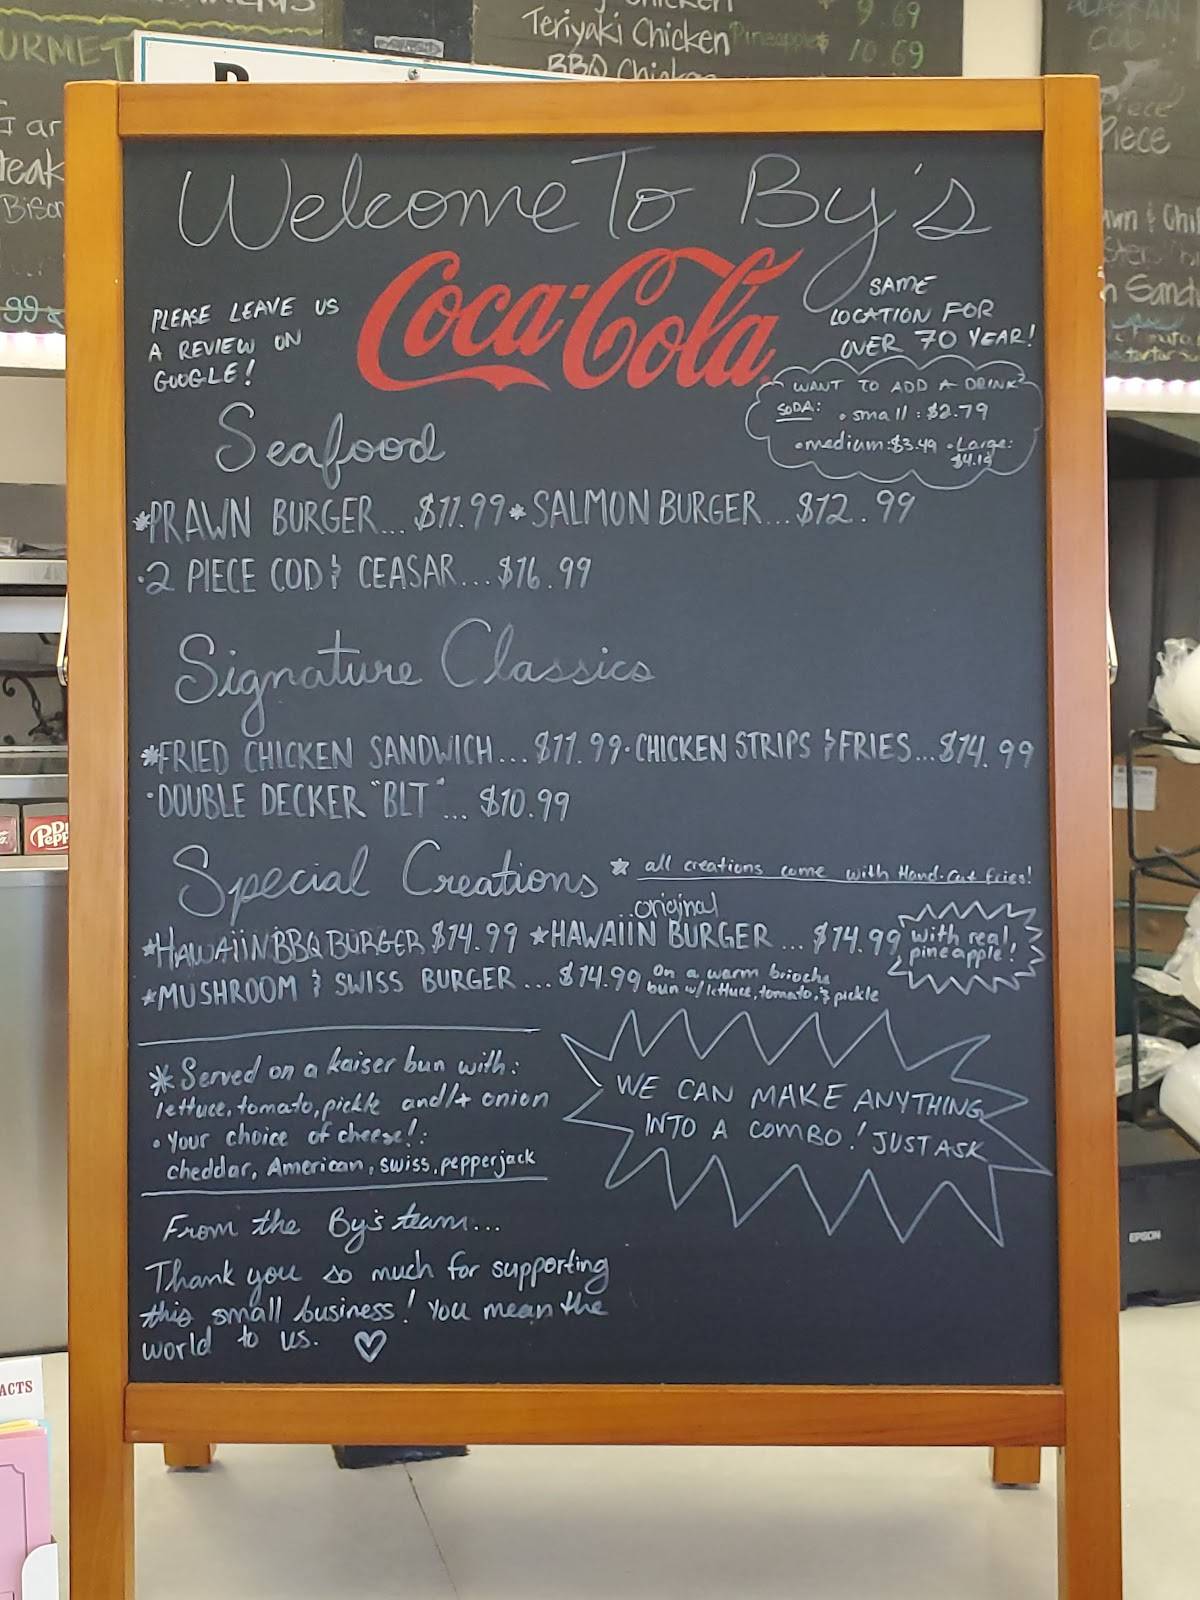 URMET
Teriyaki Chicken Pineapple
9.69
10.69
BBQ Chicken
Piece
Welcome To By's
Coca-Cola
PLEASE LEAVE US
A REVIEW ON
GOOGLE!
SAME
LOCATION FOR
OVER 70 YEAR!
WANT TO ADD A DRINK?
SODA: • small: $2.79
• medium: $3.49 • Large:
$4.19
Seafood
*PRAWN BURGER... $11.99 * SALMON BURGER... $12.99
• 2 PIECE COD & CEASAR... $16.99
Signature Classics
*FRIED CHICKEN SANDWICH... $11.99 • CHICKEN STRIPS & FRIES... $14.99
• DOUBLE DECKER "BLT"... $10.99
Special Creations ★ all creations come with Hand-Cut fries!
★HAWAIIN BBQ BURGER $14.99 ★ ...original HAWAIIN BURGER ... $14.99 with real pineapple!
★MUSHROOM & SWISS BURGER ... $14.99 On a warm brioche
bun w/ lettuce, tomato, & pickle
* Served on a kaiser bun with:
lettuce, tomato, pickle and/+ onion
• Your choice of cheese!:
cheddar, American, swiss, pepperjack
WE CAN MAKE ANYTHING
INTO A COMBO! JUST ASK
From the By's team...
Thank you so much for supporting
this small business! You mean the
world to us. ♡
EPSON
ACTS